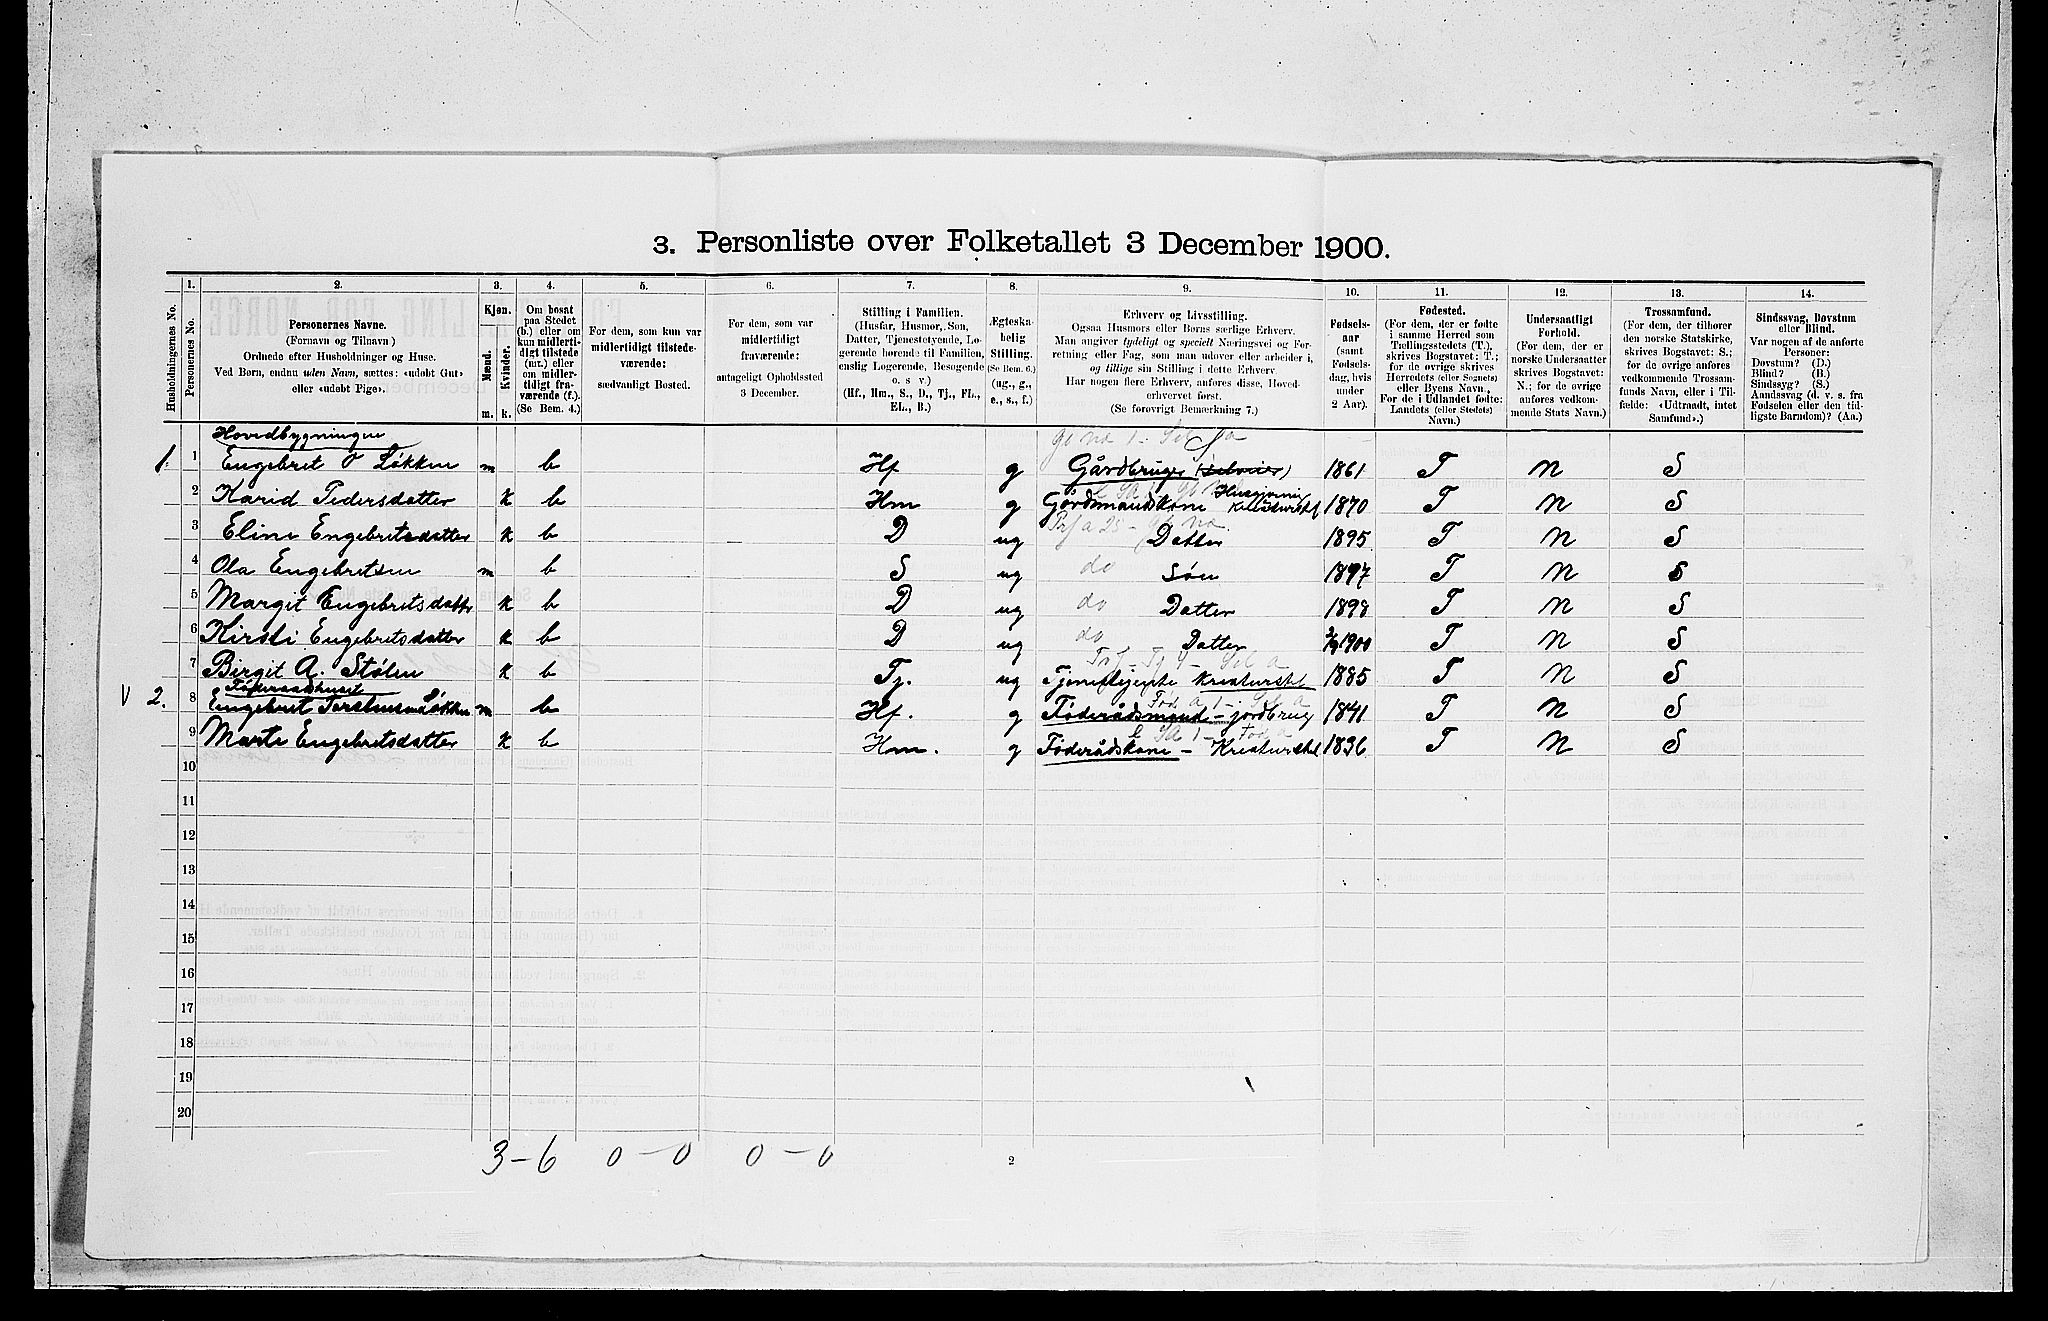 3. Personliste over Folketallet 3 December 1900.
1. 2. 3. 4. 5. 6. 7. 8. 9. 10. 11. 12. 13. 14.
Husholdningernes No.
Personernes No.
Personernes Navne.
(Fornavn og Tilnavn)
Ordnede efter Husholdninger og Huse.
Ved Børn, endnu uden Navn, sættes: «udøbt Gut»
eller «udøbt Pige».
Kjøn.
Mænd.
Kvinder.
m. k.
Om bosat
paa Stedet
(b.) eller om
kun midlerti-
digt tilstede
(mt.) eller
om midler-
tidigt fra-
værende (f.).
(Se Bem. 4.)
For dem, som kun var
midlertidigt tilstede-
værende:
sædvanligt Bosted.
For dem, som var
midlertidigt
fraværende:
antageligt Opholdssted
3 December.
Stilling i Familien.
(Husfar, Husmor, Søn,
Datter, Tjenestetyende, Lo-
gerende hørende til Familien,
enslig Logerende, Besøgende
o. s v.)
(Hf., Hm., S., D., Tj., FL.,
EL., B.)
Ægteska-
belig
Stilling.
(Se Bem. 6.)
(ug., g.,
e., s., f.)
Erhverv og Livsstilling.
Ogsaa Husmors eller Børns særlige Erhverv.
Man angiver tydeligt og specielt Næringsvei og For-
retning eller Fag, som man udøver eller arbeider i,
og tillige sin Stilling i dette Erhverv.
Har nogen flere Erhverv, anføres disse, Hoved-
erhvervet først.
(Se forøvrigt Bemerkning 7.)
Fødsels-
aar
(samt
Fødsels-
dag, hvis
under
2 Aar).
Fødested.
(For dem, der er fødte
i samme Herred som
Tællingsstedets (T.),
skrives Bogstavet: T.;
for de øvrige skrives
Herredets (eller Sognets)
eller Byens Navn.
For de i Udlandet fødte:
Landets (eller Stedets)
Navn.)
Undersaatligt
Forhold.
(For dem, der er
norske Undersaatter
skrives Bogstavet:
N.; for de øvrige
anføres vedkom-
mende Stats Navn.)
Trossamfund.
(For dem, der tilhører
den norske Statskirke,
skrives Bogstavet: S.;
for de øvrige anføres
vedkommende Trossam-
funds Navn, eller i Til-
fælde: «Udtraadt, intet
Samfund».)
Sindssvag, Døvstum
eller Blind.
Var nogen af de anførte
Personer:
Døvstum? (D.)
Blind? (B.)
Sindssyg? (S.)
Aandssvag (d. v. s. fra
Fødselen eller den tid-
ligste Barndom)? (Aa.)
Hovedbygningen
1. 1 Engebret O Løkken m b Hf g Gårdbruger (Selveier) 1861 T N S
2 Karid Pedersdatter k b Hm g Gårdmandskone Husgjerning Kreaturstel 1870 T N S
3 Eline Engebretsdatter k b D ug Datter 1895 T N S
4 Ola Engebretsen m b S ug do Søn 1897 T N S
5 Margit Engebretsdatter k b D ug do Datter 1898 T N S
6 Kirsti Engebretsdatter k b D ug do Datter 1900 T N S
7 Birgit A. Stølen k b Tj. ug Tjenestejente Kreaturstel 1885 T N S
Føderaadshuset
V 2. 8 Engebret Torstensen Løkken m b Hf. g Føderådsmand – jordbrug 1841 T N S
9 Marte Engebretsdatter k b Hm. g Føderådskone – Kreaturstel 1836 T N S
10
11
12
13
14
15
16
17
18
19
20
3 – 6 0 – 0 0 – 0
2